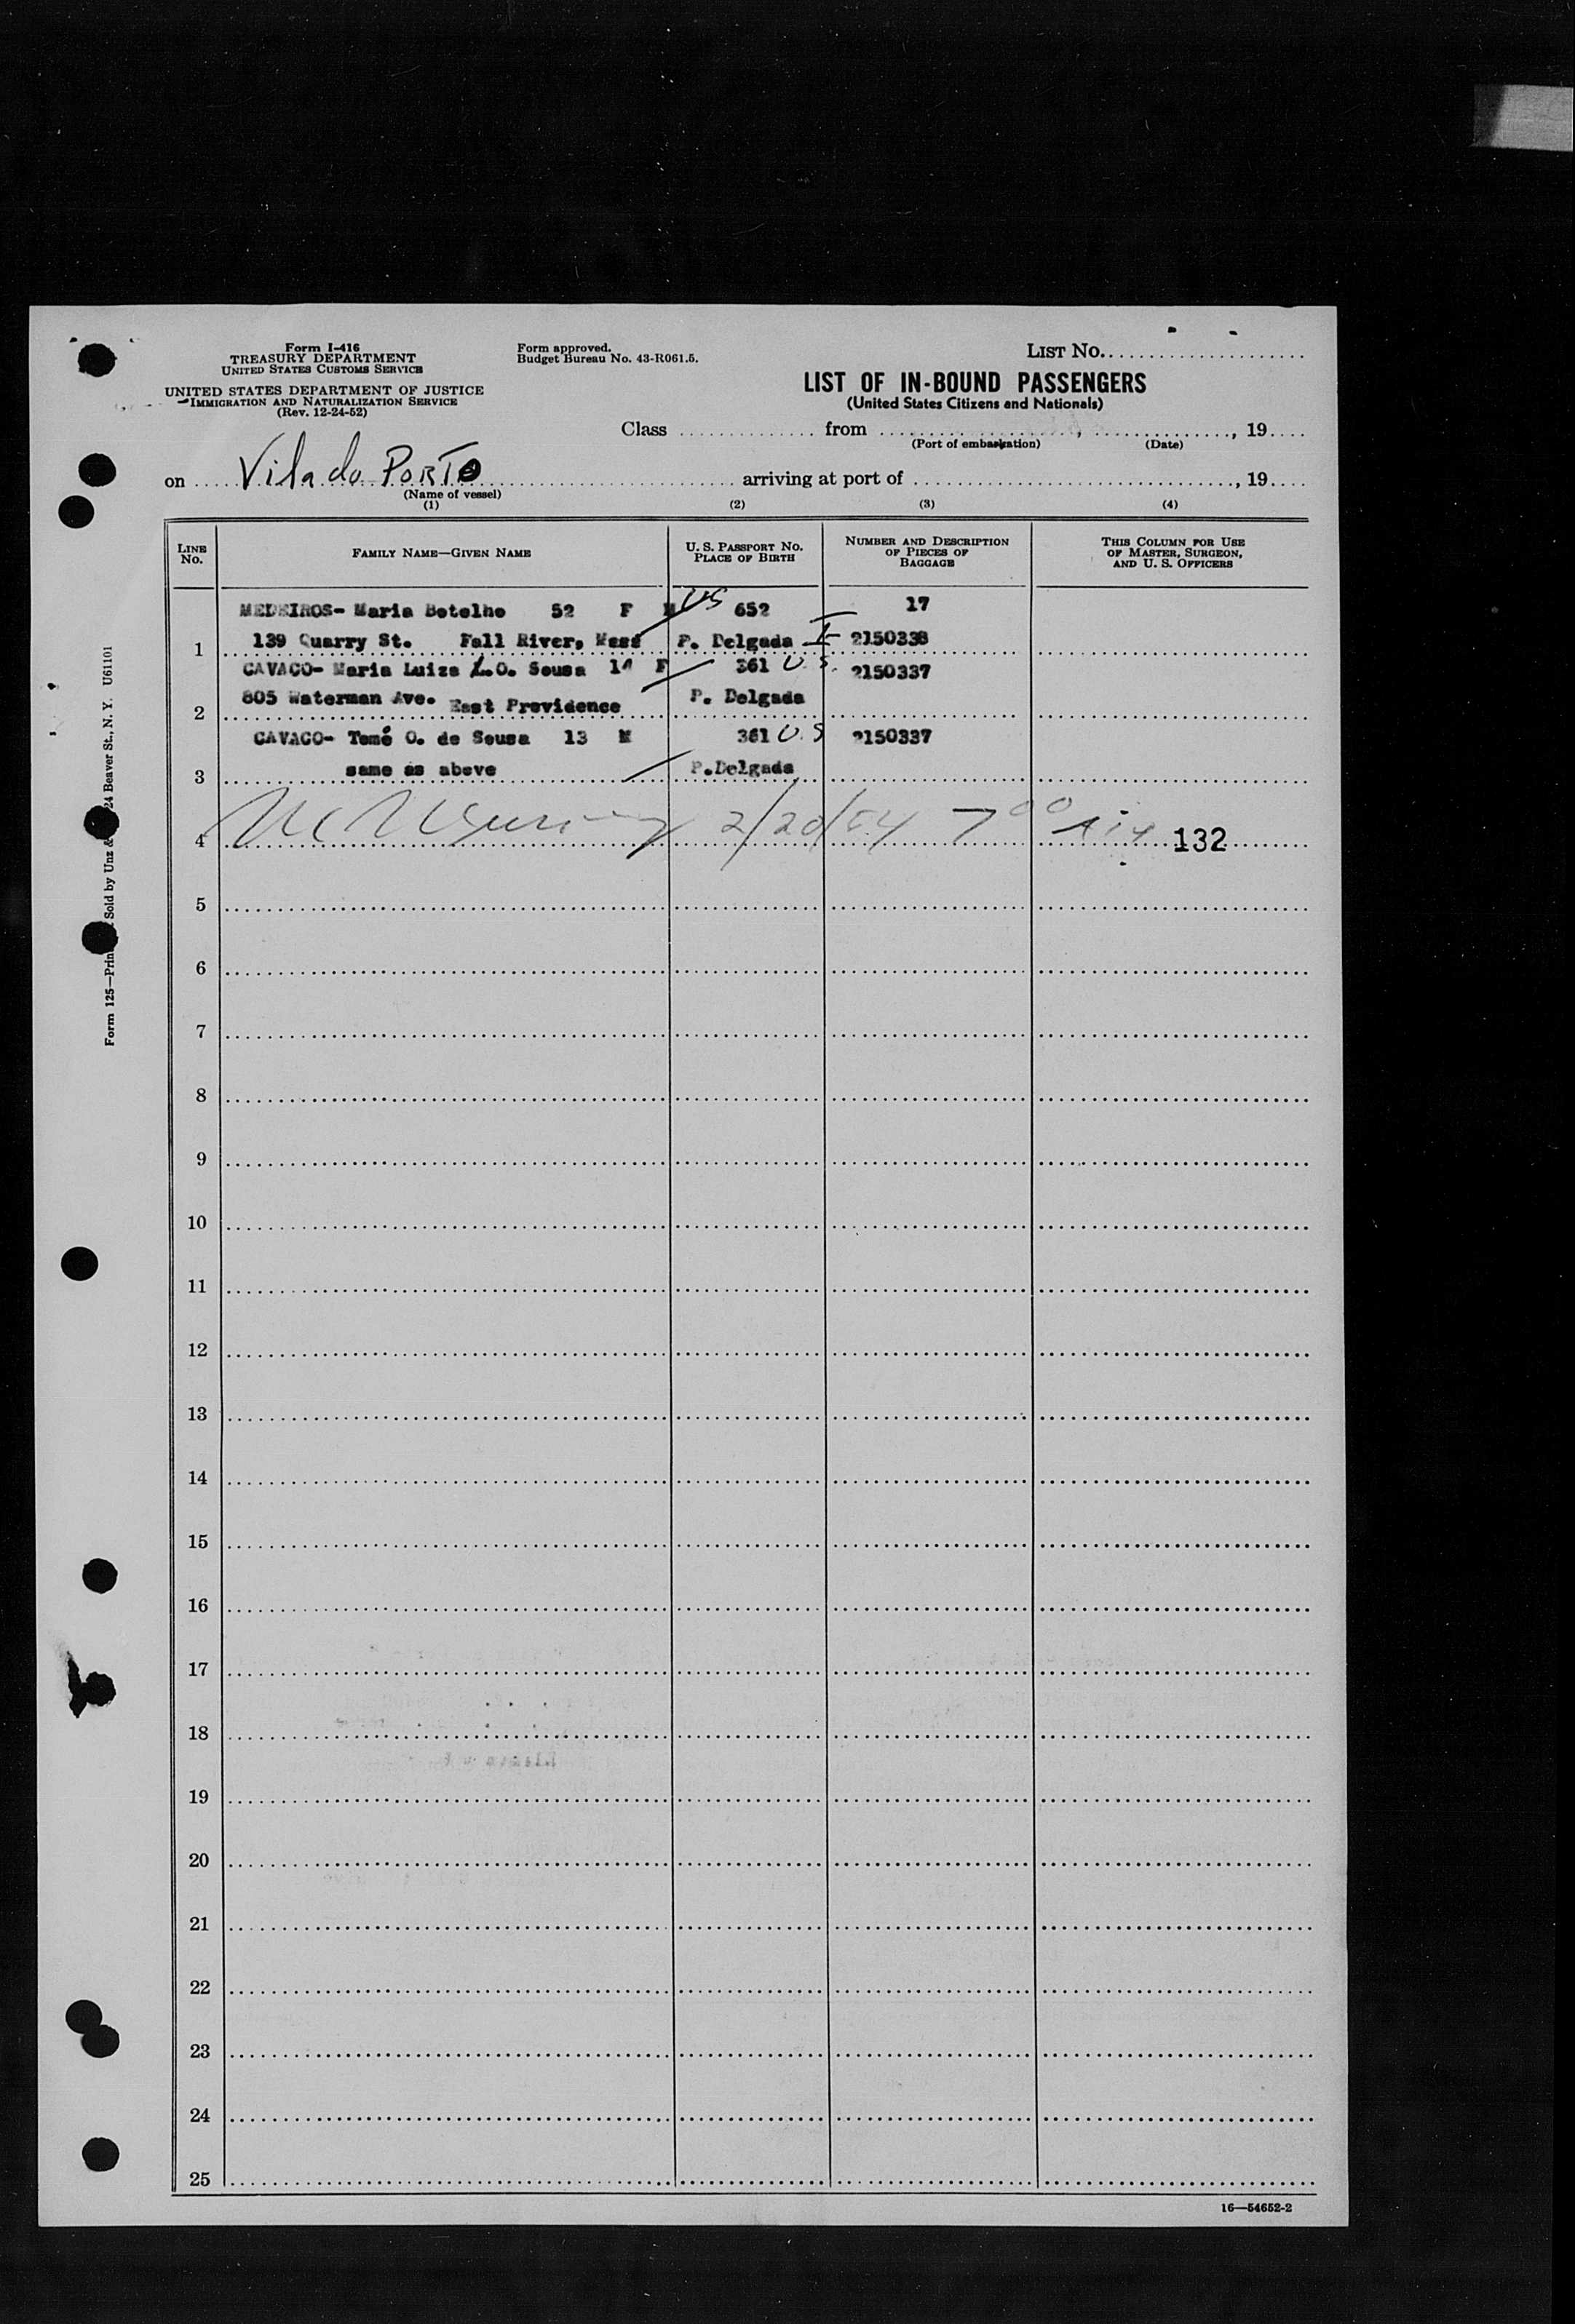 Form I-416
TREASURY DEPARTMENT
UNITED STATES CUSTOMS SERVICE
UNITED STATES DEPARTMENT OF JUSTICE
IMMIGRATION AND NATURALIZATION SERVICE
(Rev. 12-24-52)
Form approved.
Budget Bureau No. 43-R061.5.
LIST No.
LIST OF IN-BOUND PASSENGERS
(United States Citizens and Nationals)
Class from , , 19
(Port of embarkation) (Date)
on Vila do PORTO arriving at port of , 19
(Name of vessel)
(1) (2) (3) (4)
LINE No. FAMILY NAME—GIVEN NAME U. S. PASSPORT No. PLACE OF BIRTH NUMBER AND DESCRIPTION OF PIECES OF BAGGAGE THIS COLUMN FOR USE OF MASTER, SURGEON, AND U. S. OFFICERS
MEDEIROS- Maria Botelho 52 F US 652 17
1 139 Quarry St. Fall River, Mass P. Delgada 2150338
CAVACO- Maria Luiza L.O. Sousa 14 F 361 U.S. 2150337
805 Waterman Ave. East Providence P. Delgada
2
CAVACO- Tomé O. de Sousa 13 M 361 U.S 2150337
3 same as above P.Delgada
4 2/20/54 7 00 132
5
6
7
8
9
10
11
12
13
14
15
16
17
18
19
20
21
22
23
24
25
16—54652-2
Form 125—Prin Sold by Unz & 24 Beaver St., N. Y. U61101